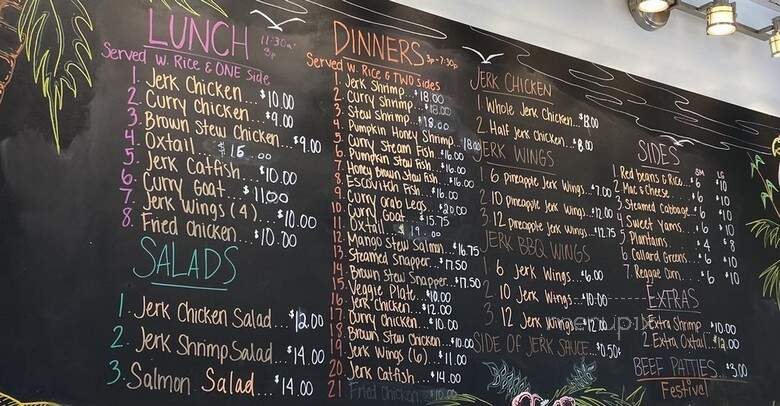 LUNCH 11:30a-3p
Served w. Rice & ONE Side
1. Jerk Chicken...$10.00
2. Curry Chicken...$9.00
3. Brown Stew Chicken...$9.00
4. Oxtail...$15.00
5. Jerk Catfish...$10.00
6. Curry Goat...$11.00
7. Jerk Wings (4)...$10.00
8. Fried Chicken...$10.00
SALADS
1. Jerk Chicken Salad...$12.00
2. Jerk Shrimp Salad...$14.00
3. Salmon Salad...$14.00
DINNERS 3p-7:30p
Served w. Rice & TWO Sides
1. Jerk Shrimp...$18.00
2. Curry Shrimp...$18.00
3. Stew Shrimp...$18.00
4. Pumpkin Honey Shrimp...$18.00
5. Curry Steam Fish...$16.00
6. Pumpkin Stew Fish...$16.00
7. Honey Brown Stew Fish...$16.00
8. Escovitch Fish...$16.00
9. Curry Crab Legs...$20.00
10. Curry Goat...$15.75
11. Oxtail...$19.00
12. Mango Stew Salmon...$16.75
13. Steamed Snapper...$17.50
14. Brown Stew Snapper...$17.50
15. Veggie Plate...$10.00
16. Jerk Chicken...$12.00
17. Curry Chicken...$10.00
18. Brown Stew Chicken...$10.00
19. Jerk Wings (6)...$11.00
20. Jerk Catfish...$14.00
21 Fried Chicken...$10.00
JERK CHICKEN
1. Whole Jerk Chicken...$18.00
2. Half Jerk Chicken...$8.00
JERK WINGS
1 6 Pineapple Jerk Wings...$7.00
2 10 Pineapple Jerk Wings...$12.00
3 12 Pineapple Jerk Wings...$12.75
JERK BBQ WINGS
1 6 Jerk Wings...$6.00
2 10 Jerk Wings...$10.00
3 12 Jerk Wings...$12.00
SIDE OF JERK SAUCE...$0.50¢
SIDES SM LG
1. Red Beans & Rice...$6 $10
2. Mac & Cheese...$6 $10
3. Steamed Cabbage...$6 $10
4. Sweet Yams...$6 $10
5. Plantains...$4 $8
6. Collard Greens...$6 $10
7. Reggae Corn...$6 $10
EXTRAS
1 Extra Shrimp $10.00
2. Extra Oxtail...$12.00
BEEF PATTIES...$3.00
Festival
menupix